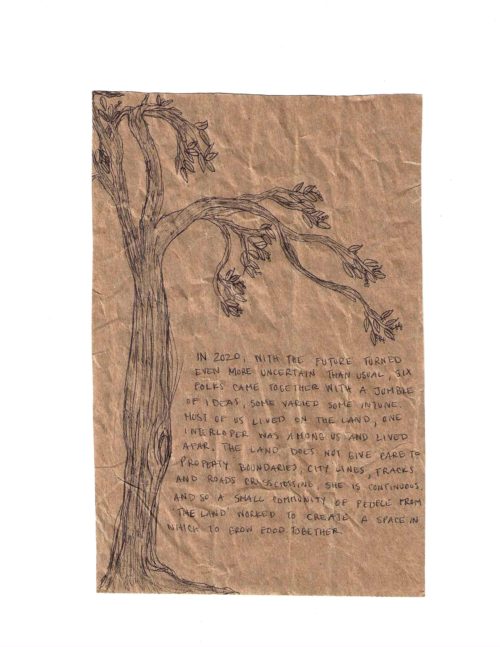 IN 2020, WITH THE FUTURE TURNED
EVEN MORE UNCERTAIN THAN USUAL, SIX
FOLKS CAME TOGETHER WITH A JUMBLE
OF IDEAS, SOME VARIED SOME INTUNE.
MOST OF US LIVED ON THE LAND, ONE
INTERLOPER WAS AMONG US AND LIVED
APART. THE LAND DOES NOT GIVE CARE TO
PROPERTY BOUNDARIES, CITY LINES, TRACKS
AND ROADS CRISSCROSSING. SHE IS CONTINUOUS.
AND SO A SMALL COMMUNITY OF PEOPLE FROM
'THE LAND' WORKED TO CREATE A SPACE IN
WHICH TO GROW FOOD TOGETHER.